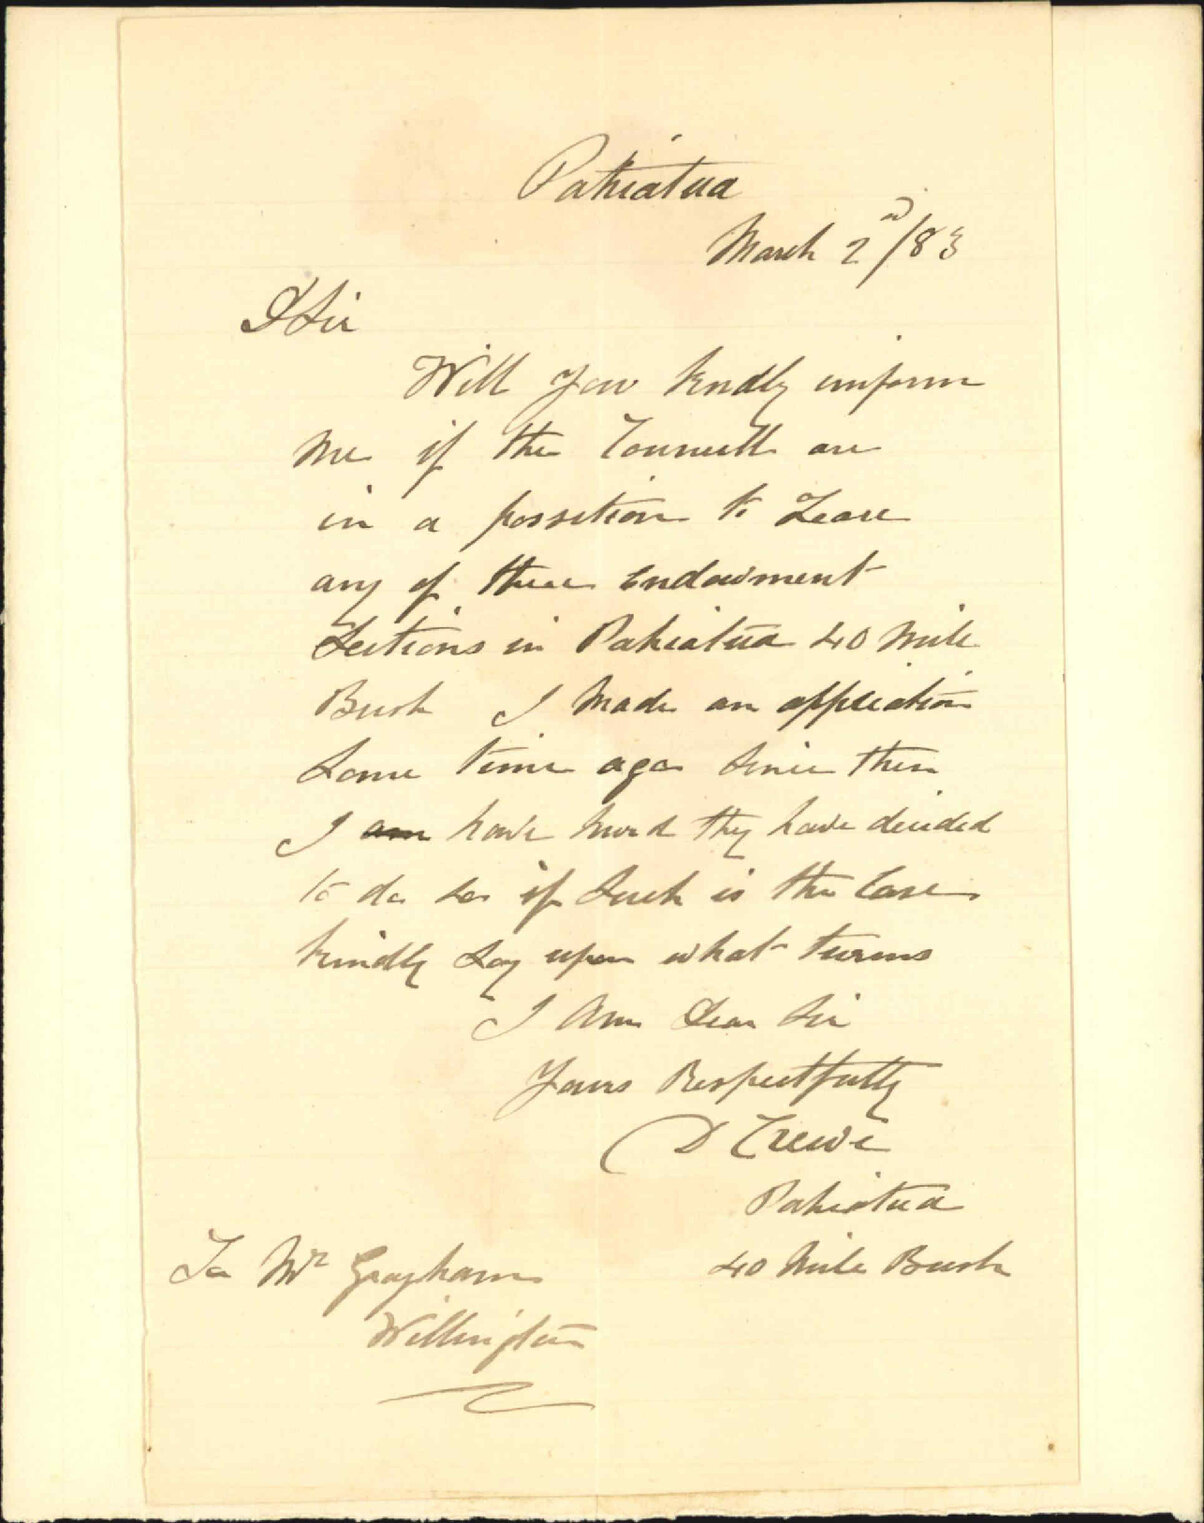 Pahiatua
March 2nd/83
D Sir
Will you kindly imform
me if the Councill are
in a possition to Lease
any of there Endowment
Sections in Pahiatua 40 Mile
Bush I made an appliction
Some time ago Since then
I am have heard they have decided
to do so if Such is the Case
kindly Say upon what turms
I Am Dear Sir
Yours Respectfully
D Crewe
Pahiatua
40 Mile Bush
To Mr Grayham
Wellington